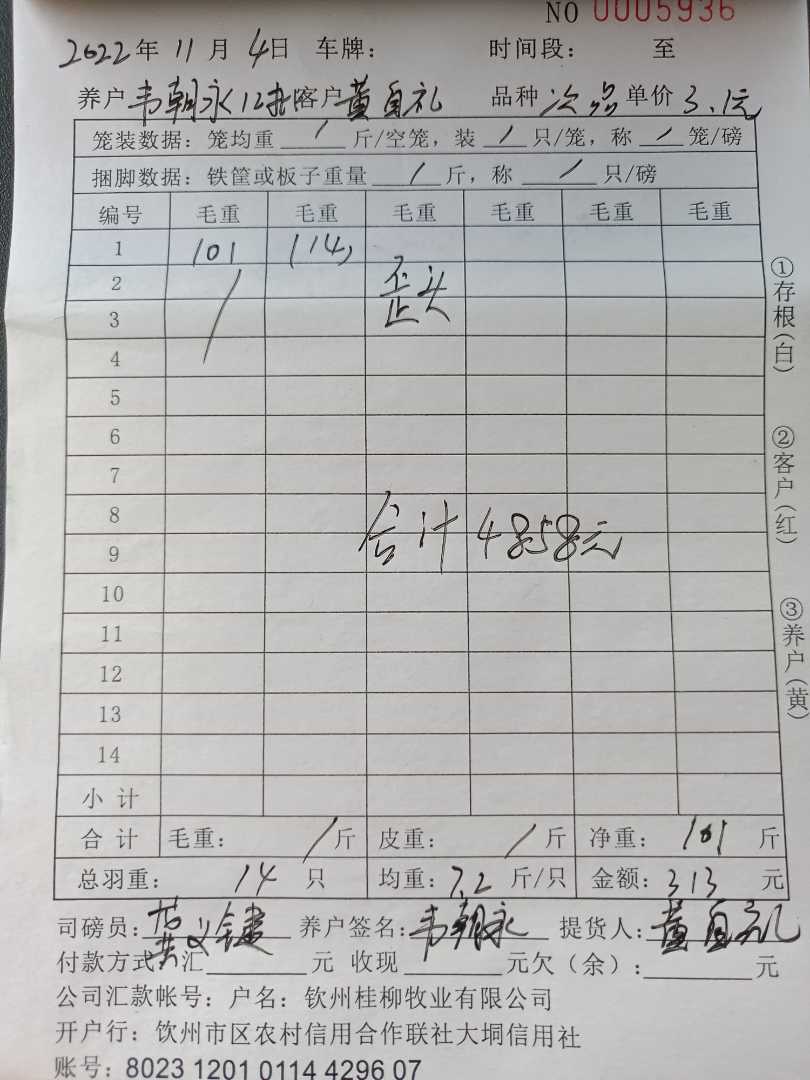 NO 0005936
2022年 11月 4日 车牌: 时间段: 至
养户 韦朝永12批 客户 黄自礼 品种 次品 单价 3.1元
笼装数据: 笼均重 / 斤/空笼, 装 / 只/笼, 称 / 笼/磅
捆脚数据: 铁筐或板子重量 / 斤, 称 / 只/磅
编号 毛重 毛重 毛重 毛重 毛重 毛重
1 101 (14)
2 / 歪头
3
4
5
6
7
8 合计4858元
9
10
11
12
13
14
小计
合计 毛重: / 斤 皮重: / 斤 净重: 101 斤
总羽重: 14 只 均重: 7.2 斤/只 金额: 313 元
司磅员: 黄义键 养户签名: 韦朝永 提货人: 黄自礼
付款方式: 汇 元 收现 元欠(余): 元
公司汇款帐号: 户名: 钦州桂柳牧业有限公司
开户行: 钦州市区农村信用合作联社大垌信用社
账号: 8023 1201 0114 4296 07
①存根(白)
②客户(红)
③养户(黄)